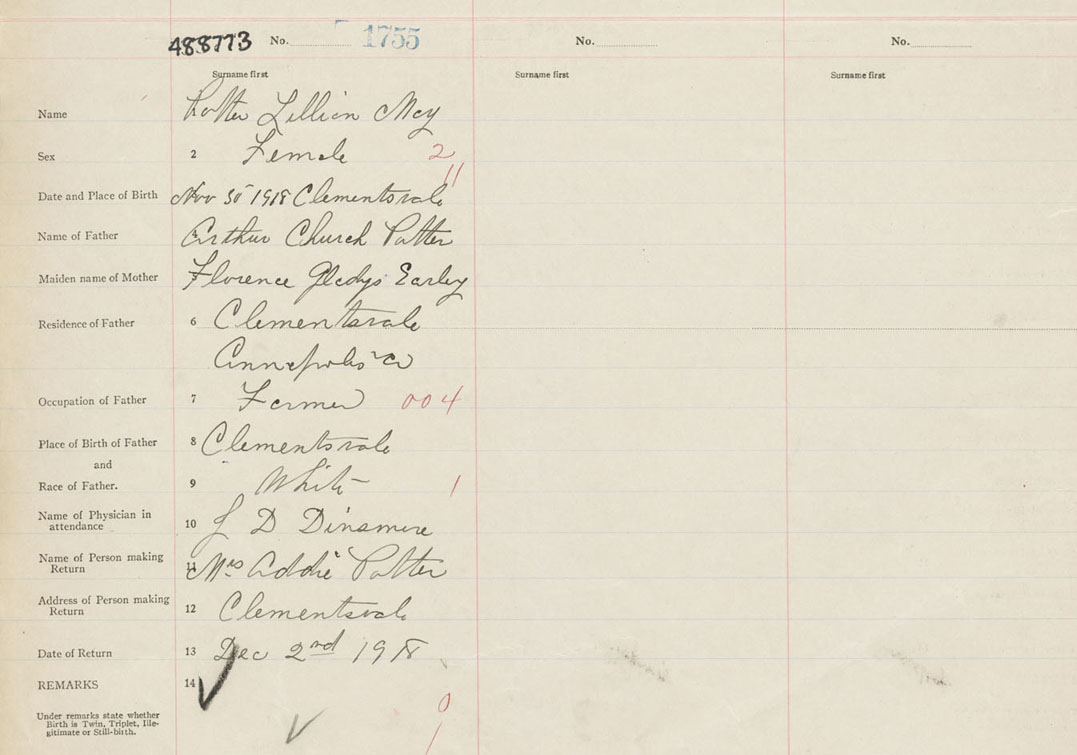 488773 No. 1755 No. No.
Surname first Surname first Surname first
Name 1 Potter Lillian May
Sex 2 Female 2
11
Date and Place of Birth Nov 30 1918 Clementsvale
Name of Father 4 Arthur Church Potter
Maiden name of Mother 5 Florence Gladys Earley
Residence of Father 6 Clementsvale
Annapolis Co
Occupation of Father 7 Farmer 004
Place of Birth of Father 8 Clementsvale
and
Race of Father. 9 White 1
Name of Physician in
attendance 10 D Dinsmore
Name of Person making
Return 11 Mrs Addie Potter
Address of Person making
Return 12 Clementsvale
Date of Return 13 Dec 2nd 1918
REMARKS 14
0
Under remarks state whether
Birth is Twin, Triplet, Ille-
gitimate or Still-birth.
1